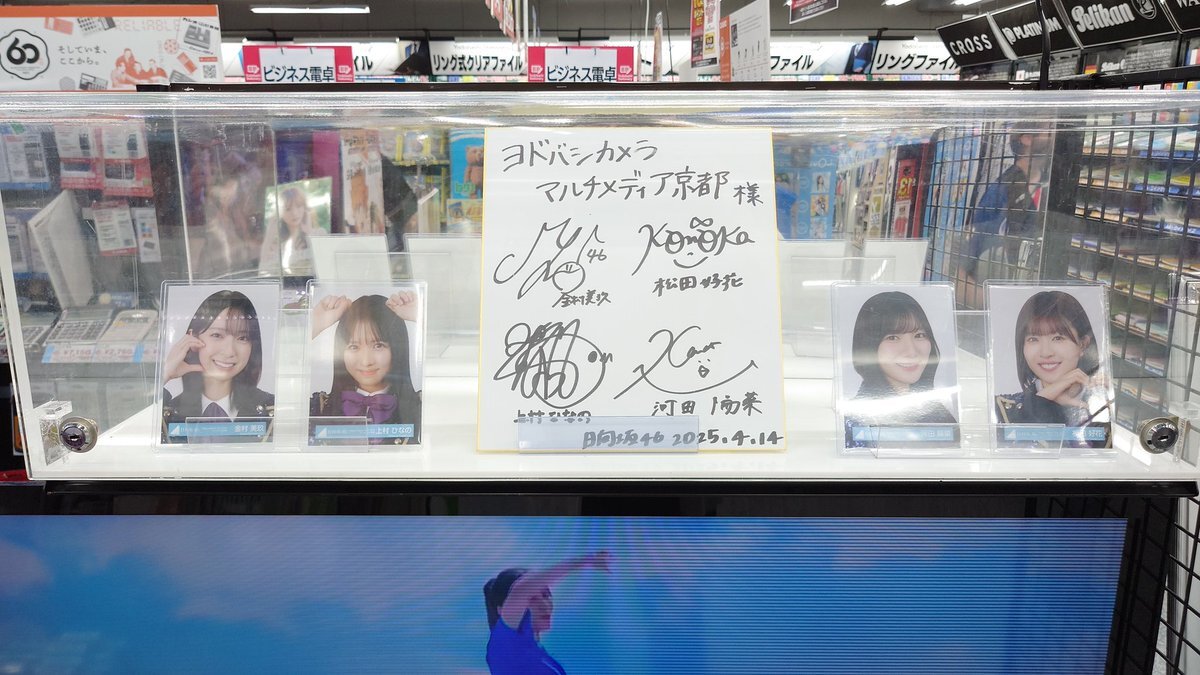 RELIABLE
60
そしていま、
ここから。
ビジネス電卓
リング式クリアファイル
ビジネス電卓
ファイル
リングファイル
CROSS
PLATINUM
Pelikan
ヨドバシカメラ
マルチメディア京都 様
46
Konoka
金村美玖
松田好花
上村ひなの
河田陽菜
日向坂46 2025.4.14
金村 美玖
上村 ひなの
好花